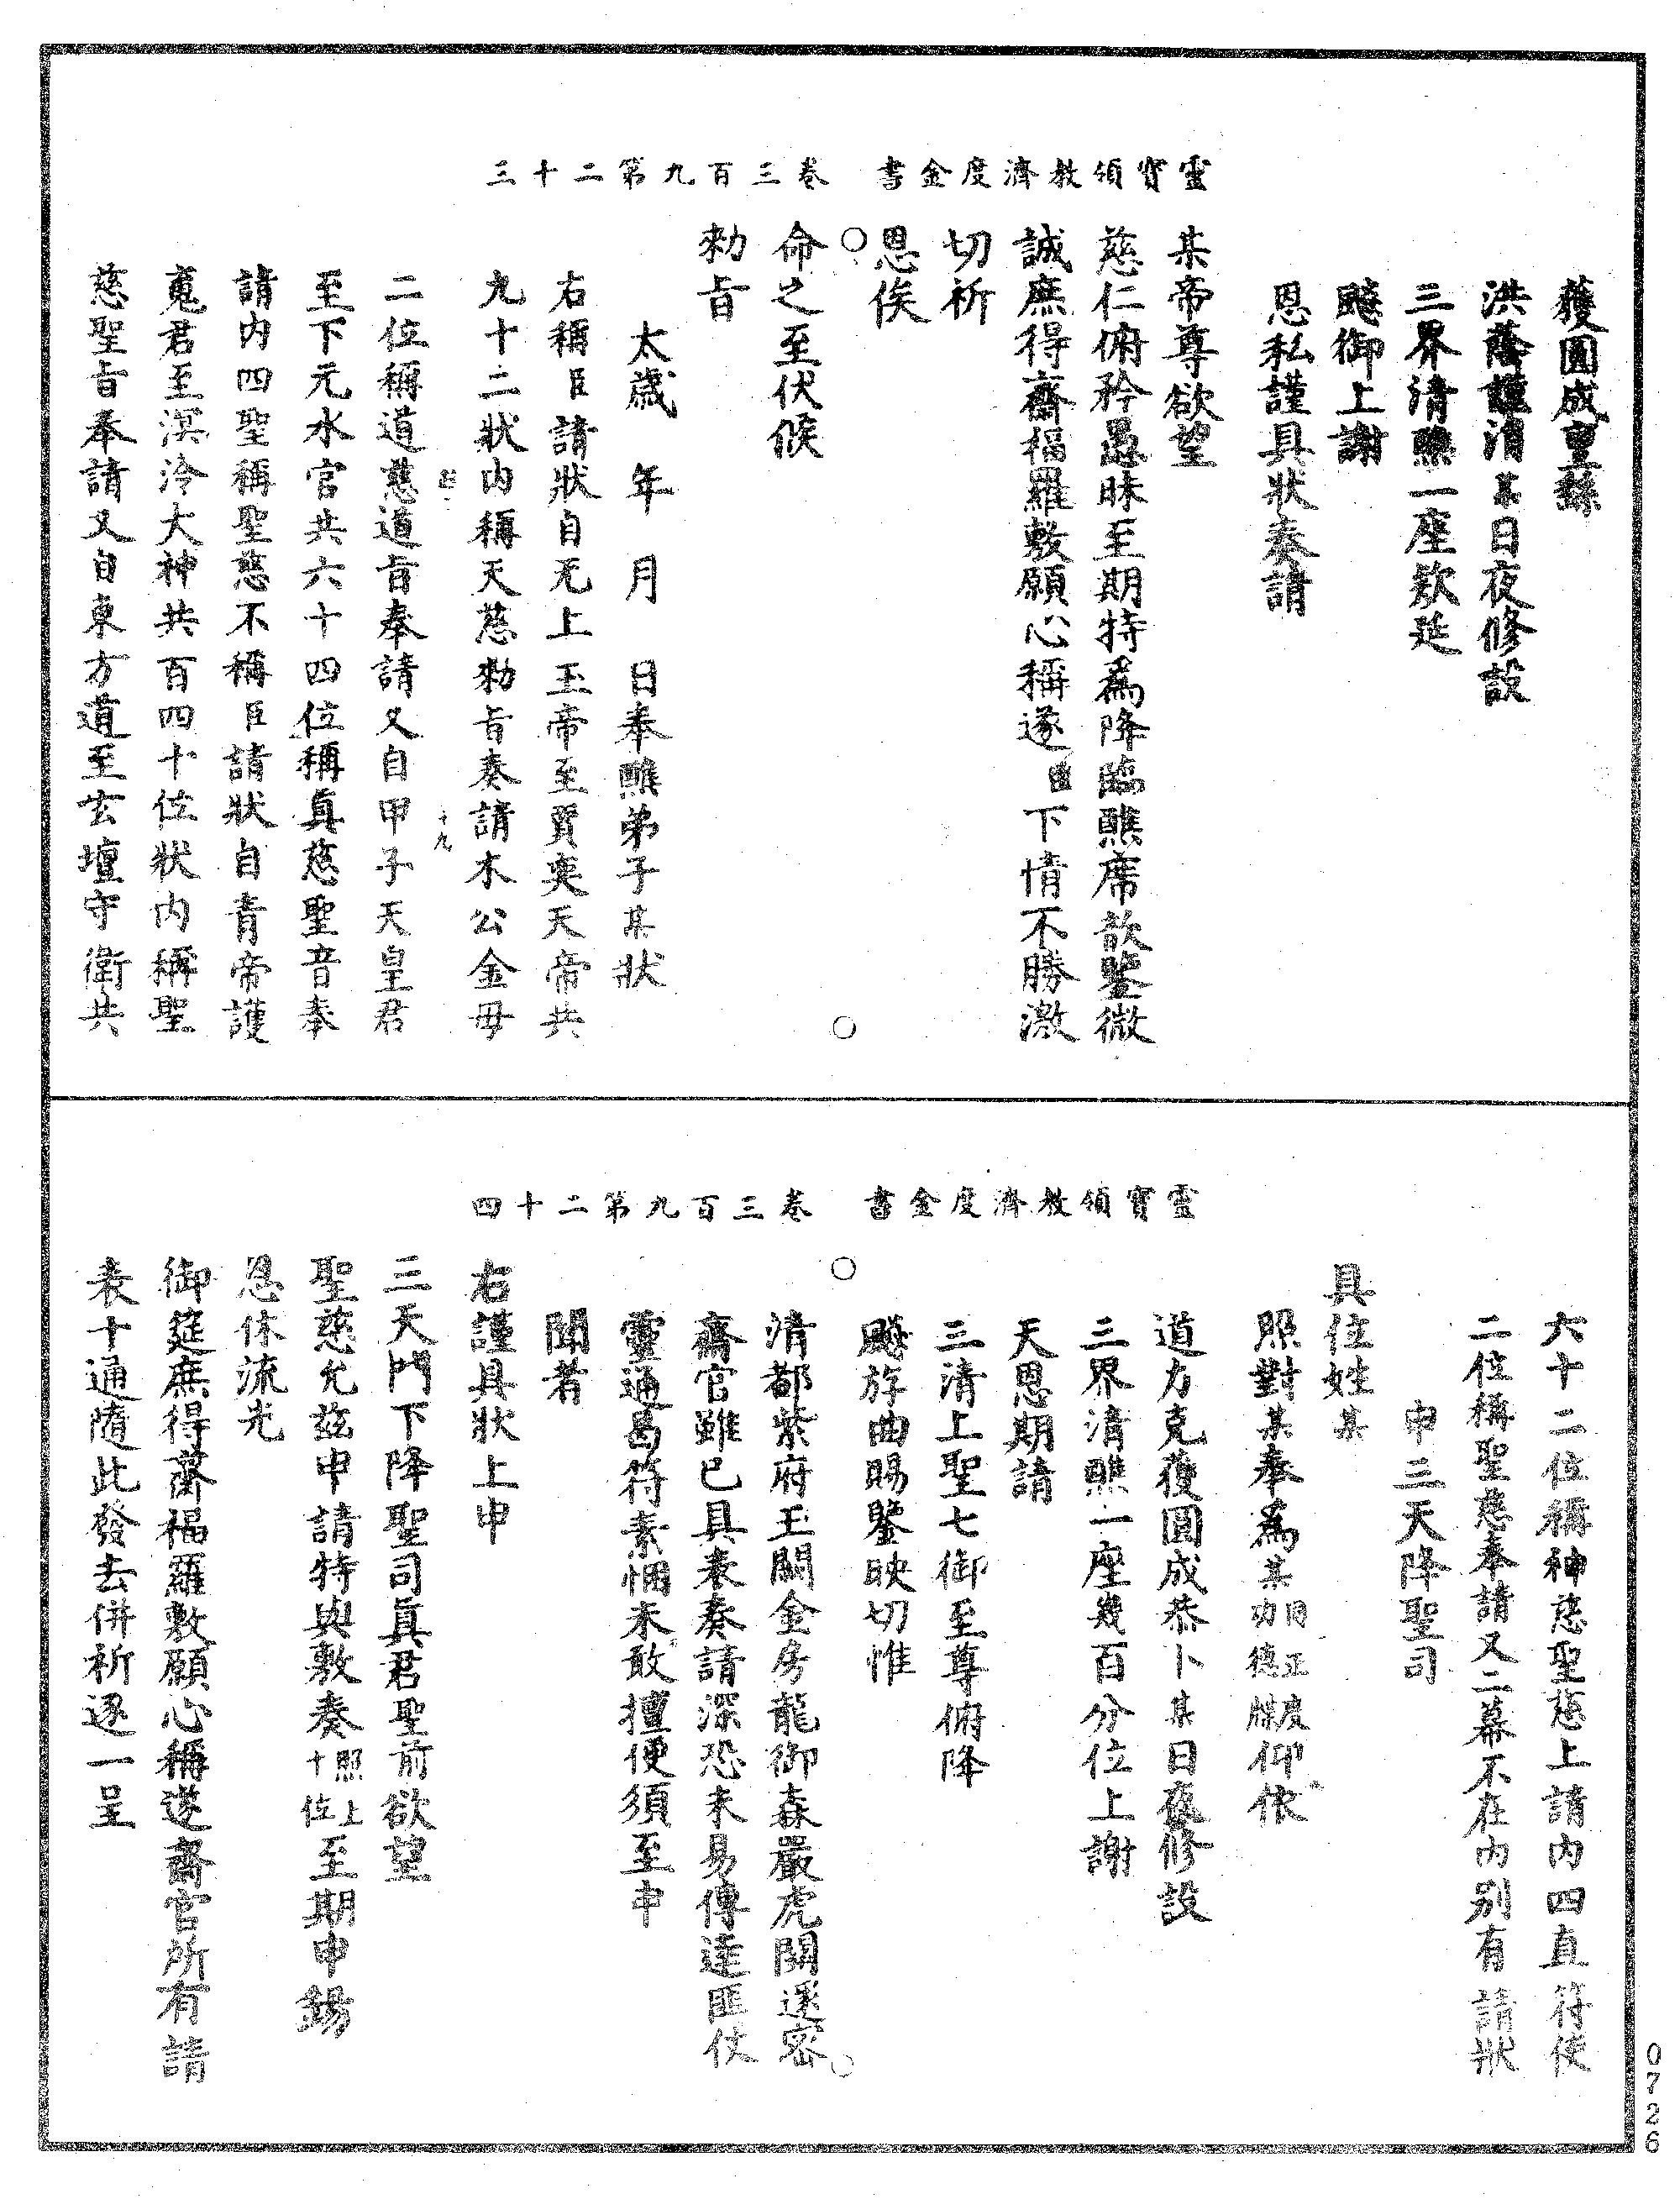 靈寶領教濟度金書 卷三百九第二十三
獲圓成皇繇
洪蔭謹消某日夜修設
三界清醮一座欵延
飈御上謝
恩私謹具狀奏請
某帝尊欲望
慈仁俯矜愚昧至期特為降臨醮席歆鑒微
誠庶得齋福羅敷願心稱遂臣下情不勝激
切祈
恩俟
命之至伏候
勑旨
太歲 年 月 日奉醮弟子某狀
右稱臣請狀自无上玉帝至賈奕天帝共
九十二狀内稱天慈勑旨奏請木公金母
十九
二位稱道慈道旨奉請又自甲子天皇君
至下元水官共六十四位稱眞慈聖音奉
請内四聖稱聖慈不稱臣請狀自青帝護
䰟君至溟泠大神共百四十位狀内稱聖
慈聖旨奉請又自東方道至玄壇守衛共
靈寶領教濟度金書 卷三百九第二十四
六十二位稱神慈聖慈上請内四直符使
二位稱聖慈奉請又二幕不在内别有請狀
申三天降聖司
具位姓某
照對某奉為某同正度功德牒仰依
道力克獲圓成恭卜某日夜修設
三界清醮一座幾百分位上謝
天恩期請
三清上聖七御至尊俯降
飈斿曲賜鑒映切惟
清都紫府玉闕金房龍御森嚴虎關邃密
齋官雖已具表奏請深恐未易傳達匪仗
靈通曷符素悃未敢擅便須至申
聞者
右謹具狀上申
三天門下降聖司眞君聖前欲望
聖慈允玆申請特與敷奏照上十位至期申錫
恩休流光
御筵庶得齋福羅敷願心稱遂齋官所有請
表十通隨此發去併祈逐一呈
0726